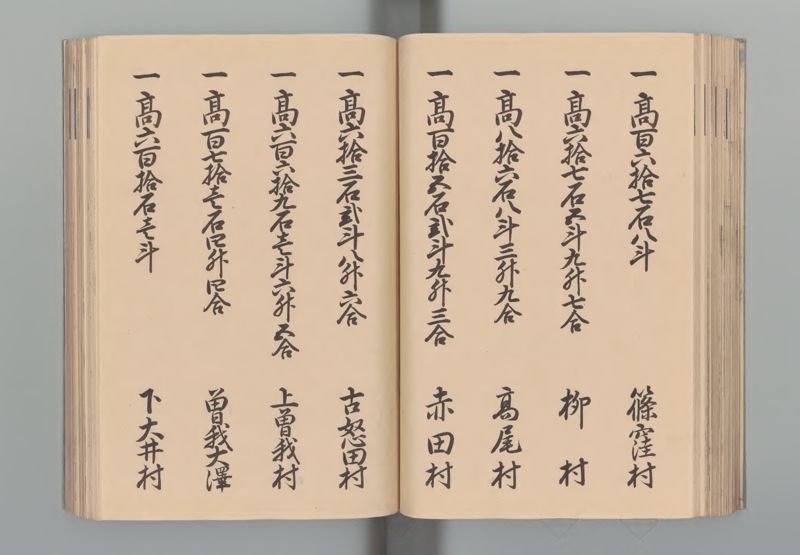 一 高百六拾七石八斗 篠窪村
一 高六拾七石五斗九升七合 柳村
一 高八拾六石八斗三升九合 高尾村
一 高百拾五石弐斗九升三合 赤田村
一 高六拾三石弐斗八升六合 古怒田村
一 高六百六拾九石壱斗六升五合 上曽我村
一 高百七拾壱石四升四合 曽我大澤
一 高六百拾石壱斗 下大井村